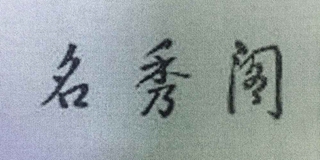 名秀阁